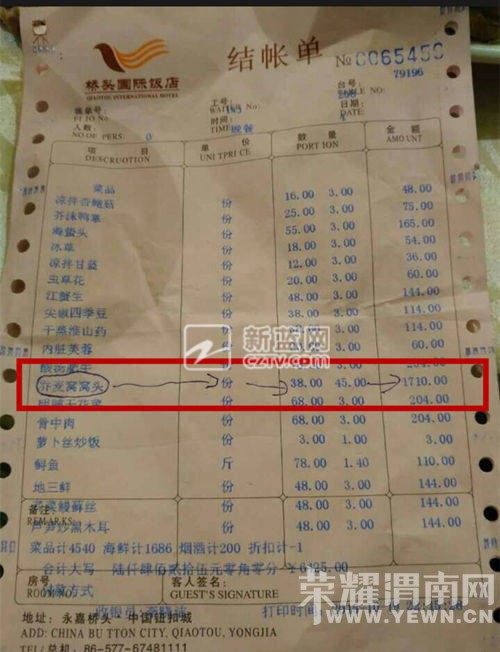 桥头国际饭店
QIAOTOU INTERNATIONAL HOTEL
结帐单
№ 0065450
79196
账单号:
工号:
台号:
日期:
时间:
TIME 晚餐
人数:
NO OF PERS: 0
项 目 单 价 数 量 金 额
DESCRUOTION UNITPRICE PORTION AMOUNT
菜品
凉拌杏鲍菇 份 16.00 3.00 48.00
芥沫鸭掌 份 25.00 3.00 75.00
海蜇头 份 55.00 3.00 165.00
冰草 份 18.00 3.00 54.00
凉拌甘蓝 份 12.00 3.00 36.00
虫草花 份 20.00 3.00 60.00
江蟹生 份 48.00 3.00 144.00
尖椒四季豆 份 38.00 3.00
干蒸淮山药 份
内脏芙蓉 份
新蓝网
cztv.com
荞麦窝窝头 份 38.00 45.00 1710.00
干花菜 份 68.00 3.00 204.00
骨中肉 份 68.00 3.00 204.00
萝卜丝炒饭 份 3.00 1.00 3.00
鲟鱼 斤 78.00 1.40 110.00
地三鲜 份 48.00 3.00 144.00
鳗鲞丝 份 48.00 3.00 144.00
炒黑木耳 份 48.00 3.00 144.00
备注:
REMARKS
菜品计4540 海鲜计1686 烟酒计200 折扣计-1
合计大写 陆仟肆佰贰拾伍元零角零分 ¥6425.00
房号
ROOM NO.
客人签名:
GUEST'S SIGNATURE
收银员
打印时间:
荣耀渭南网
WWW.YEWN.CN
地址: 永嘉桥头·中国钮扣城
ADD: CHINA BUTTON CITY, QIAOTOU, YONGJIA
TEL/总机: 86-577-67481111